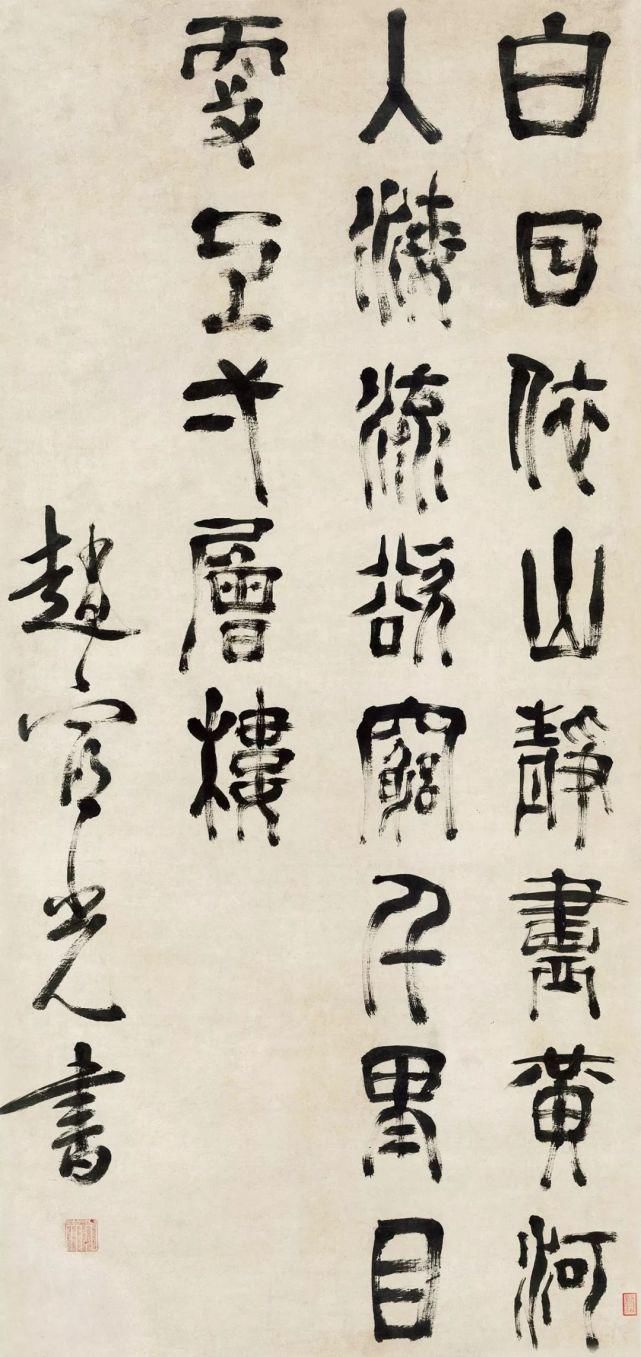 白日依山靜盡黃河
入海流欲窮千里目
更上一層樓
趙宦光書